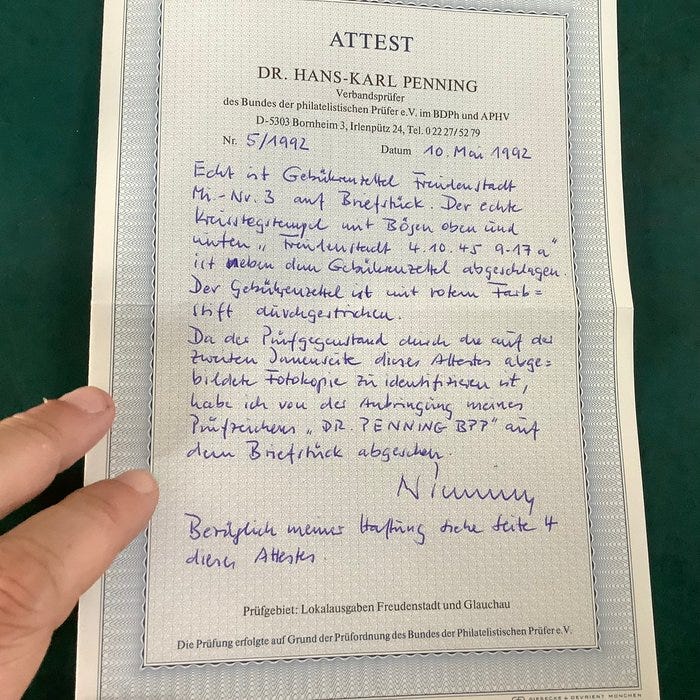 ATTEST
DR. HANS-KARL PENNING
Verbandsprüfer
des Bundes der philatelistischen Prüfer e.V. im BDPh und APHV
D-5303 Bornheim 3, Irlenpütz 24, Tel. 0 22 27/52 79
Nr. 5/1992 Datum 10. Mai 1992
Echt ist Gebührenzettel Freudenstadt
Mi.-Nr. 3 auf Briefstück. Der echte
Kreisstegstempel mit Bögen oben und
unten „Freudenstadt 4.10.45 9-17 a"
ist neben dem Gebührenzettel abgeschlagen.
Der Gebührenzettel ist mit rotem Farb=
stift durchgestrichen.
Da der Prüfgegenstand durch die auf der
zweiten Innenseite dieses Attestes abge=
bildete Fotokopie zu identifizieren ist,
habe ich von der Anbringung meines
Prüfzeichens „DR. PENNING BPP" auf
dem Briefstück abgesehen.
Bezüglich meiner Haftung siehe Seite 4
dieses Attestes.
Prüfgebiet: Lokalausgaben Freudenstadt und Glauchau
Die Prüfung erfolgte auf Grund der Prüfordnung des Bundes der Philatelistischen Prüfer e.V.
GIESECKE & DEVRIENT MÜNCHEN